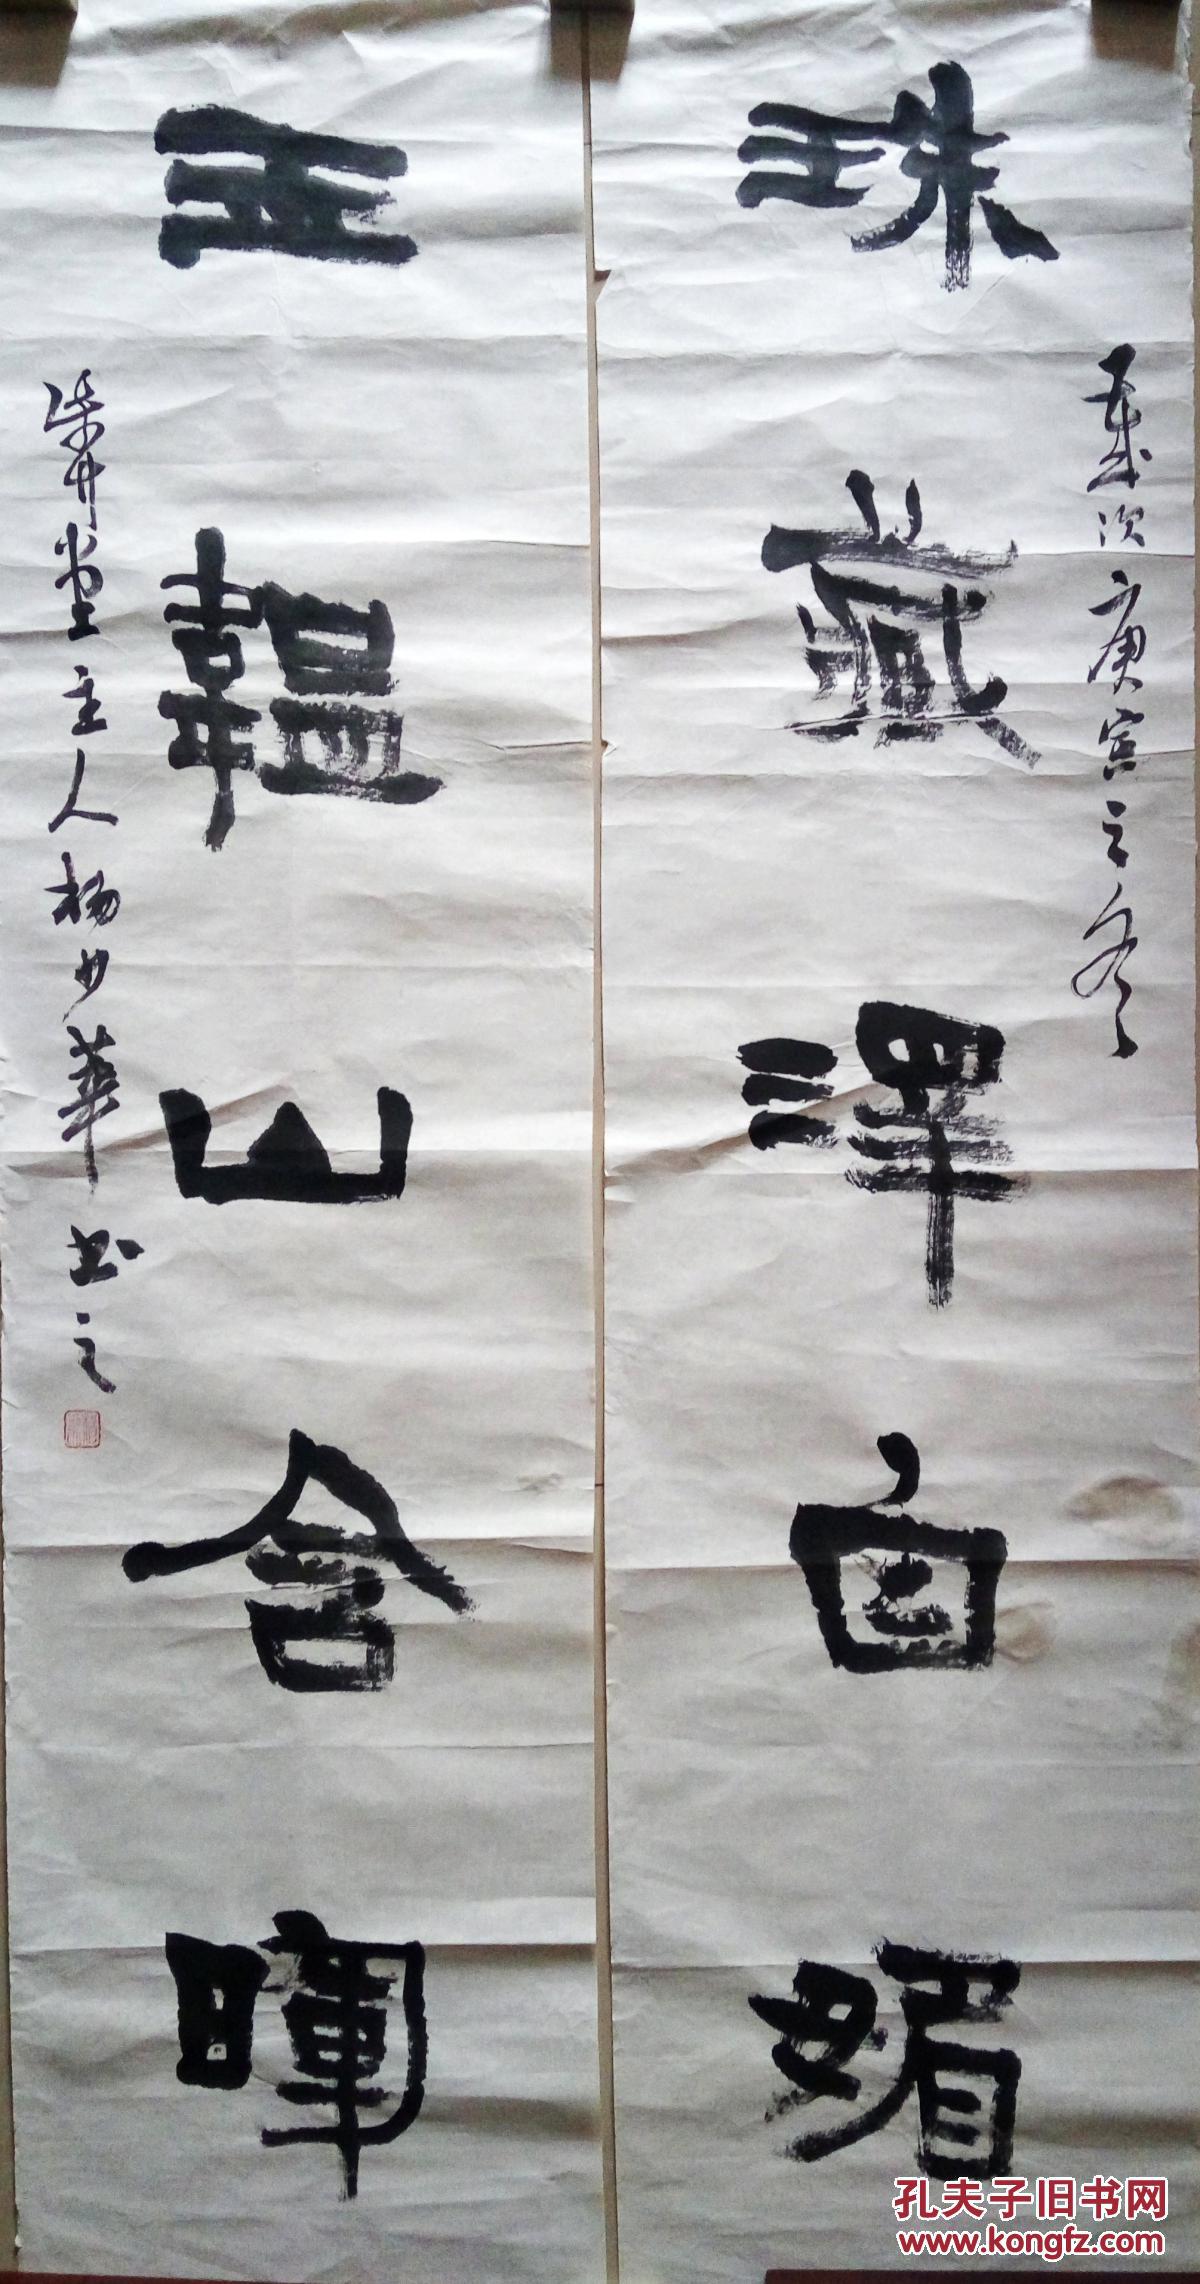 珠藏泽自媚
歲次庚寅之冬
玉韞山含暉
主人杨少華书之
孔夫子旧书网
www.kongfz.com